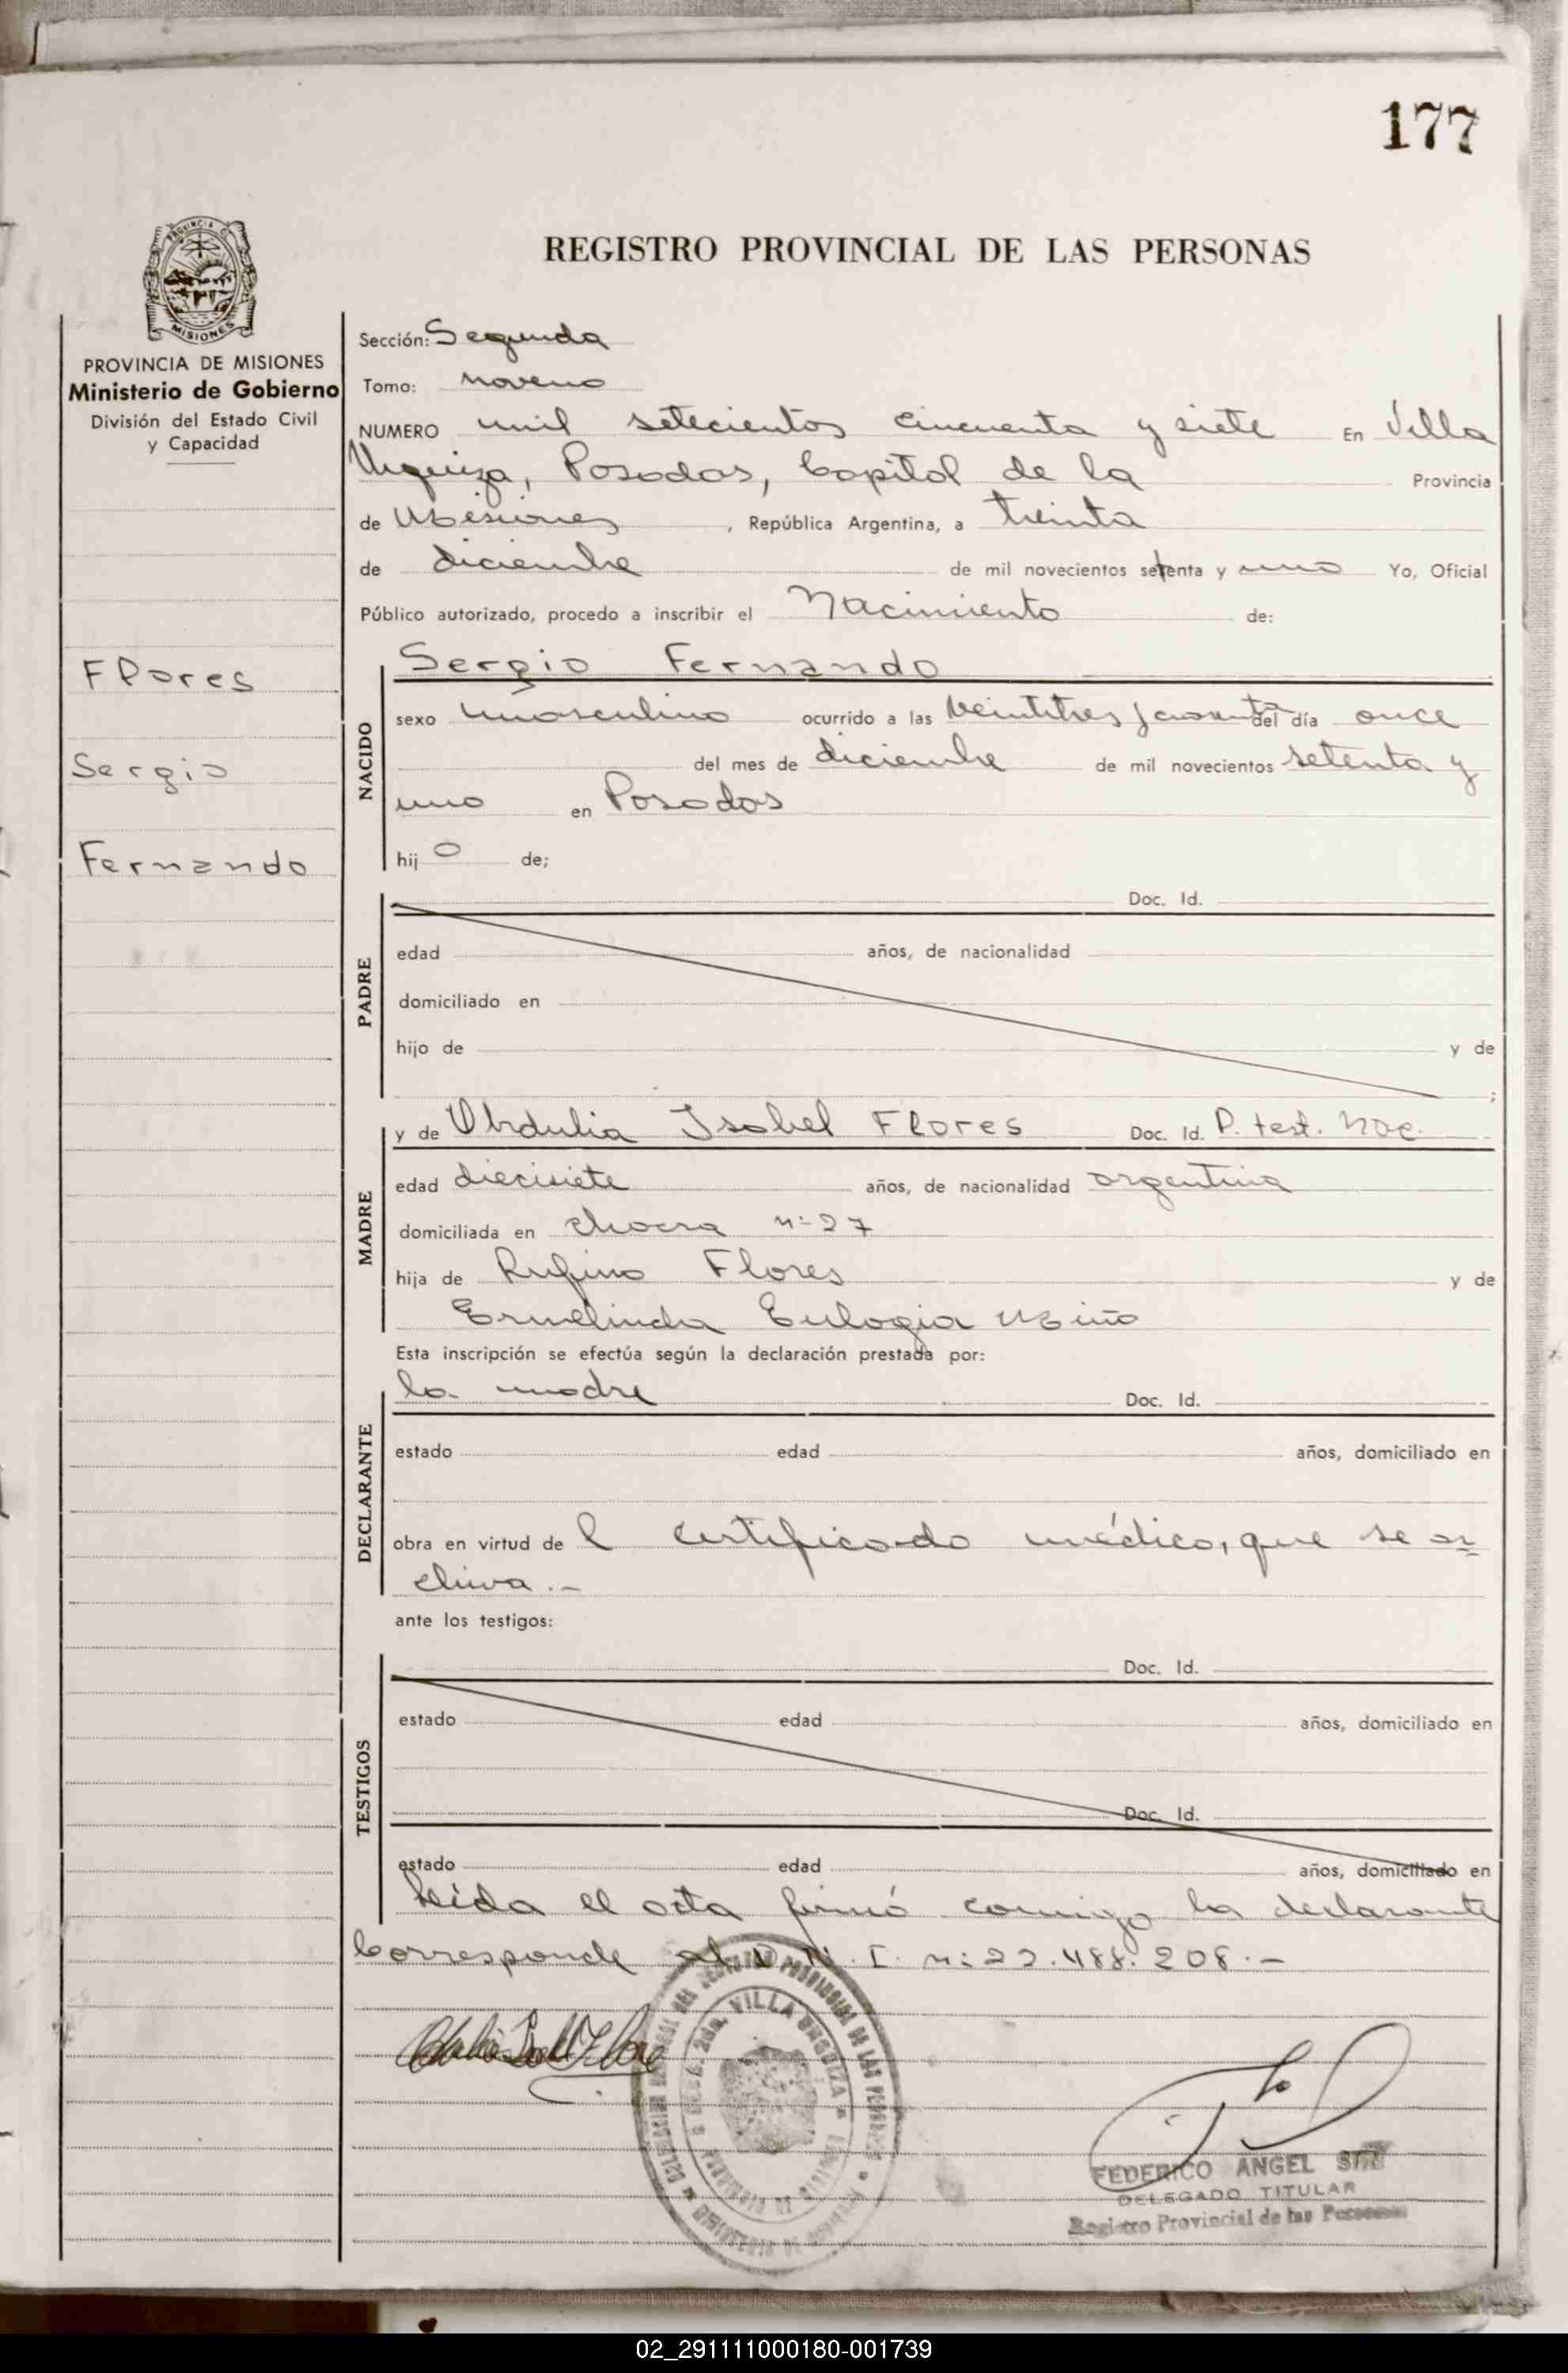 177
REGISTRO PROVINCIAL DE LAS PERSONAS
PROVINCIA DE MISIONES
Ministerio de Gobierno
División del Estado Civil
y Capacidad
Flores
Sergio
Fernando
Sección: Segunda
Tomo: noveno
NUMERO mil setecientos cincuenta y siete En Villa
Urquiza, Posadas, Capital de la Provincia
de Misiones, República Argentina, a treinta
de diciembre de mil novecientos setenta y uno Yo, Oficial
Público autorizado, procedo a inscribir el Nacimiento de:
NACIDO
Sergio Fernando
sexo masculino ocurrido a las veintitres del día once
del mes de diciembre de mil novecientos setenta y
uno en Posadas
hijo de;
PADRE
Doc. Id.
edad años, de nacionalidad
domiciliado en
hijo de y de
;
MADRE
y de Obdulia Isabel Flores Doc. Id. P. test. Nac.
edad diecisiete años, de nacionalidad argentina
domiciliada en chacra nº 27
hija de Rufino Flores y de
Ermelinda Eulogia Miño
Esta inscripción se efectúa según la declaración prestada por:
DECLARANTE
la madre Doc. Id.
estado edad años, domiciliado en
obra en virtud del certificado médico, que se ar
chiva.-
ante los testigos:
TESTIGOS
Doc. Id.
estado edad años, domiciliado en
Doc. Id.
estado edad años, domiciliado en
Leída el acta firmó conmigo la declarante
Corresponde al D.N.I. nº 22.488.208.-
VILLA URQUIZA
FEDERICO ANGEL
DELEGADO TITULAR
Registro Provincial de las Personas
02_291111000180-001739